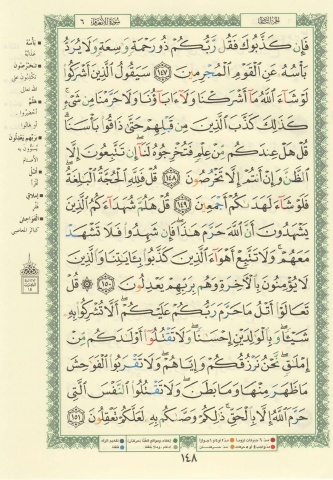 الجزء الثامن
سورة الأنعام
٦
فَإِن كَذَّبُوكَ فَقُل رَّبُّكُمْ ذُو رَحْمَةٍ وَاسِعَةٍ وَلَا يُرَدُّ
بَأْسُهُ عَنِ الْقَوْمِ الْمُجْرِمِينَ ﴿١٤٧﴾ سَيَقُولُ الَّذِينَ أَشْرَكُوا
لَوْ شَاءَ اللَّهُ مَا أَشْرَكْنَا وَلَا ءَابَاؤُنَا وَلَا حَرَّمْنَا مِن شَيْءٍ
كَذَٰلِكَ كَذَّبَ الَّذِينَ مِن قَبْلِهِمْ حَتَّىٰ ذَاقُوا بَأْسَنَا
قُلْ هَلْ عِندَكُم مِّنْ عِلْمٍ فَتُخْرِجُوهُ لَنَا إِن تَتَّبِعُونَ إِلَّا
الظَّنَّ وَإِنْ أَنتُمْ إِلَّا تَخْرُصُونَ ﴿١٤٨﴾ قُلْ فَلِلَّهِ الْحُجَّةُ الْبَالِغَةُ
فَلَوْ شَاءَ لَهَدَاكُمْ أَجْمَعِينَ ﴿١٤٩﴾ قُلْ هَلُمَّ شُهَدَاءَكُمُ الَّذِينَ
يَشْهَدُونَ أَنَّ اللَّهَ حَرَّمَ هَٰذَا فَإِن شَهِدُوا فَلَا تَشْهَدْ
مَعَهُمْ وَلَا تَتَّبِعْ أَهْوَاءَ الَّذِينَ كَذَّبُوا بِـَٔايَاتِنَا وَالَّذِينَ
لَا يُؤْمِنُونَ بِالْـَٔاخِرَةِ وَهُم بِرَبِّهِمْ يَعْدِلُونَ ﴿١٥٠﴾ قُلْ
تَعَالَوْا أَتْلُ مَا حَرَّمَ رَبُّكُمْ عَلَيْكُمْ أَلَّا تُشْرِكُوا بِهِ
شَيْـًٔا وَبِالْوَالِدَيْنِ إِحْسَانًا وَلَا تَقْتُلُوا أَوْلَادَكُم مِّنْ
إِمْلَاقٍ نَّحْنُ نَرْزُقُكُمْ وَإِيَّاهُمْ وَلَا تَقْرَبُوا الْفَوَاحِشَ
مَا ظَهَرَ مِنْهَا وَمَا بَطَنَ وَلَا تَقْتُلُوا النَّفْسَ الَّتِي
حَرَّمَ اللَّهُ إِلَّا بِالْحَقِّ ذَٰلِكُمْ وَصَّاكُم بِهِ لَعَلَّكُمْ تَعْقِلُونَ ﴿١٥١﴾
بَأْسُهُ
عَذَابُهُ
تَخْرُصُونَ
تكذبون على
الله تعالى
هَلُمَّ
أحضروا
بِرَبِّهِمْ يَعْدِلُونَ
الأصنام
أَتْلُ
أقرأ
إِمْلَاقٍ
فقر
الْفَوَاحِشَ
كبائر المعاصي
١٤٨